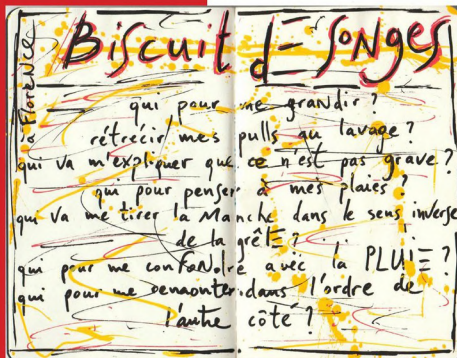 Biscuit dE SoNges
FloreNce
qui pour me graNdir ?
rétrécir mes pulls au lavage ?
qui va m'expliquer que ce n'est pas grave ?
qui pour penser à mes plaies ?
qui va me tirer la Manche dans le sens inverse
de la grêlE ?
qui pour me confoNdre avec la PLUIE ?
qui pour me demonter dans l'ordre de
l'autre côté ?